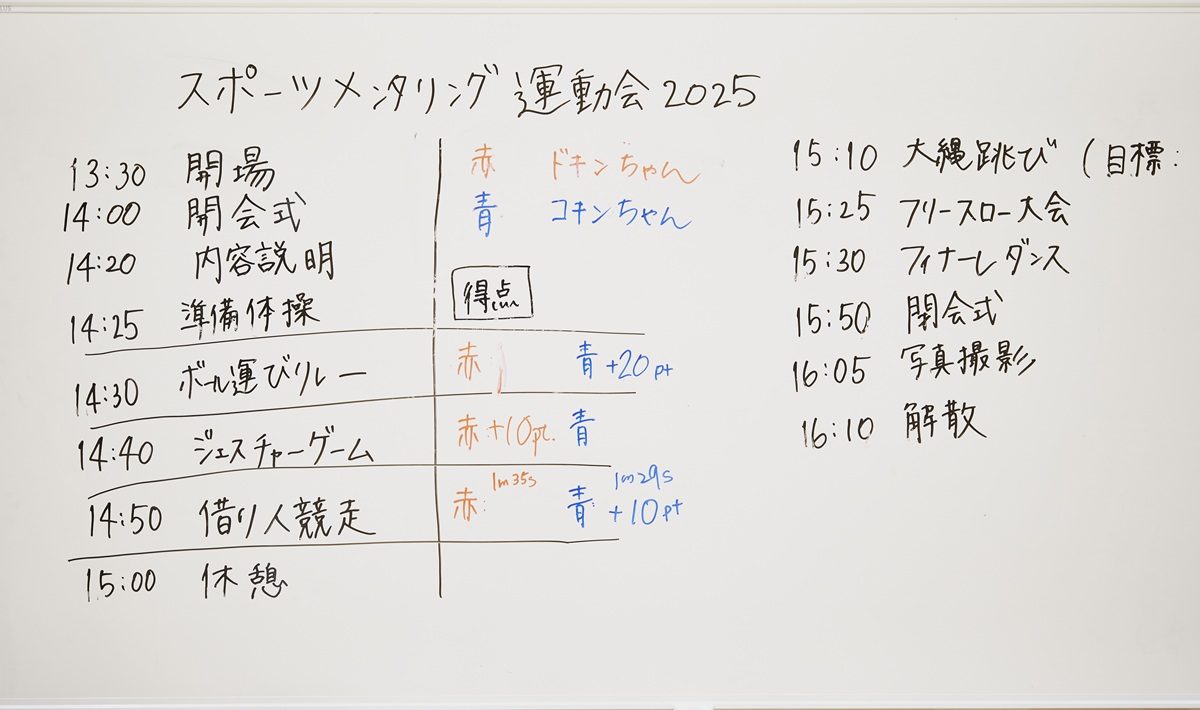 スポーツメンタリング運動会2025
13:30 開場
14:00 開会式
14:20 内容説明
14:25 準備体操
14:30 ボール運びリレー
14:40 ジェスチャーゲーム
14:50 借り人競走
15:00 休憩
赤 ドキンちゃん
青 コキンちゃん
得点
赤 青+20pt
赤+10pt. 青
赤: 1m35s 青: 1m29s +10pt
15:10 大縄跳び (目標:
15:25 フリースロー大会
15:30 フィナーレダンス
15:50 閉会式
16:05 写真撮影
16:10 解散